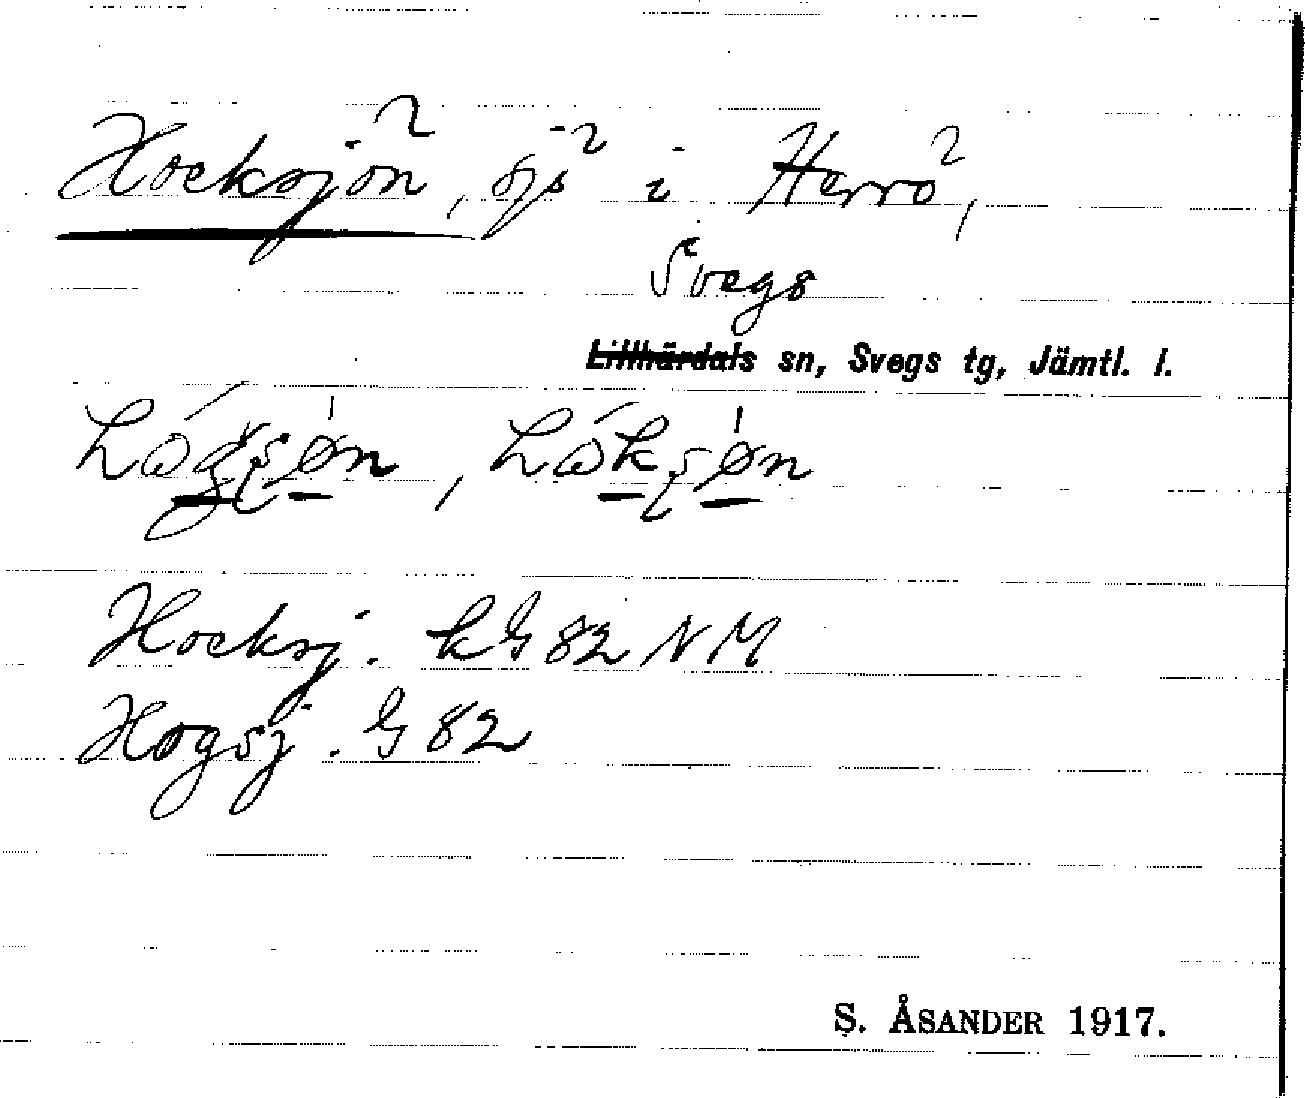 Hocksjön, sjö i Herrö,
Svegs
Lillhärdals sn, Svegs tg, Jämtl. l.
Hocksj. kG 82 NM
Hogsj. G 82
S. ÅSANDER 1917.